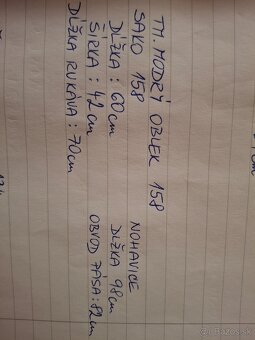 TM. MODRÝ OBLEK 158
SAKO 158
DĹŽKA : 60cm
ŠÍRKA : 42cm
DĹŽKA RUKÁVA : 70cm
NOHAVICE
DĹŽKA 98cm
OBVOD PÁSA : 82cm